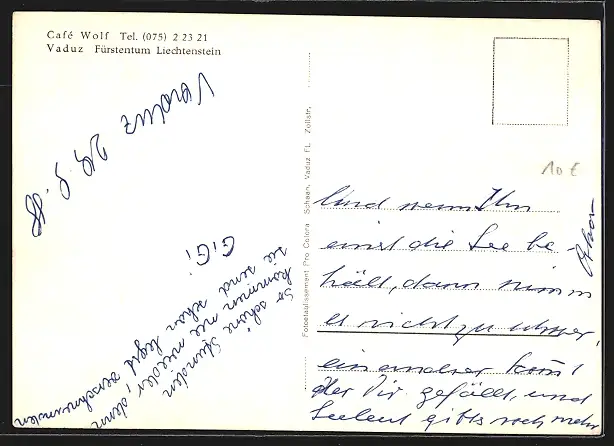 Café Wolf Tel. (075) 2 23 21
Vaduz Fürstentum Liechtenstein
Vaduz 28. 8.
Gigi
So schöne Stunden
kommen nie wieder, denn
sie sind schon längst verschwunden
Fotoetablissement Pro Colora Schaan, Vaduz FL. Zollstr.
10 €
Und wenn Ihn
einst die See be
hält, dann nimm
es nicht zu schwer,
ein andrer kommt
der Dir gefällt, und
Seeleut gibts noch mehr